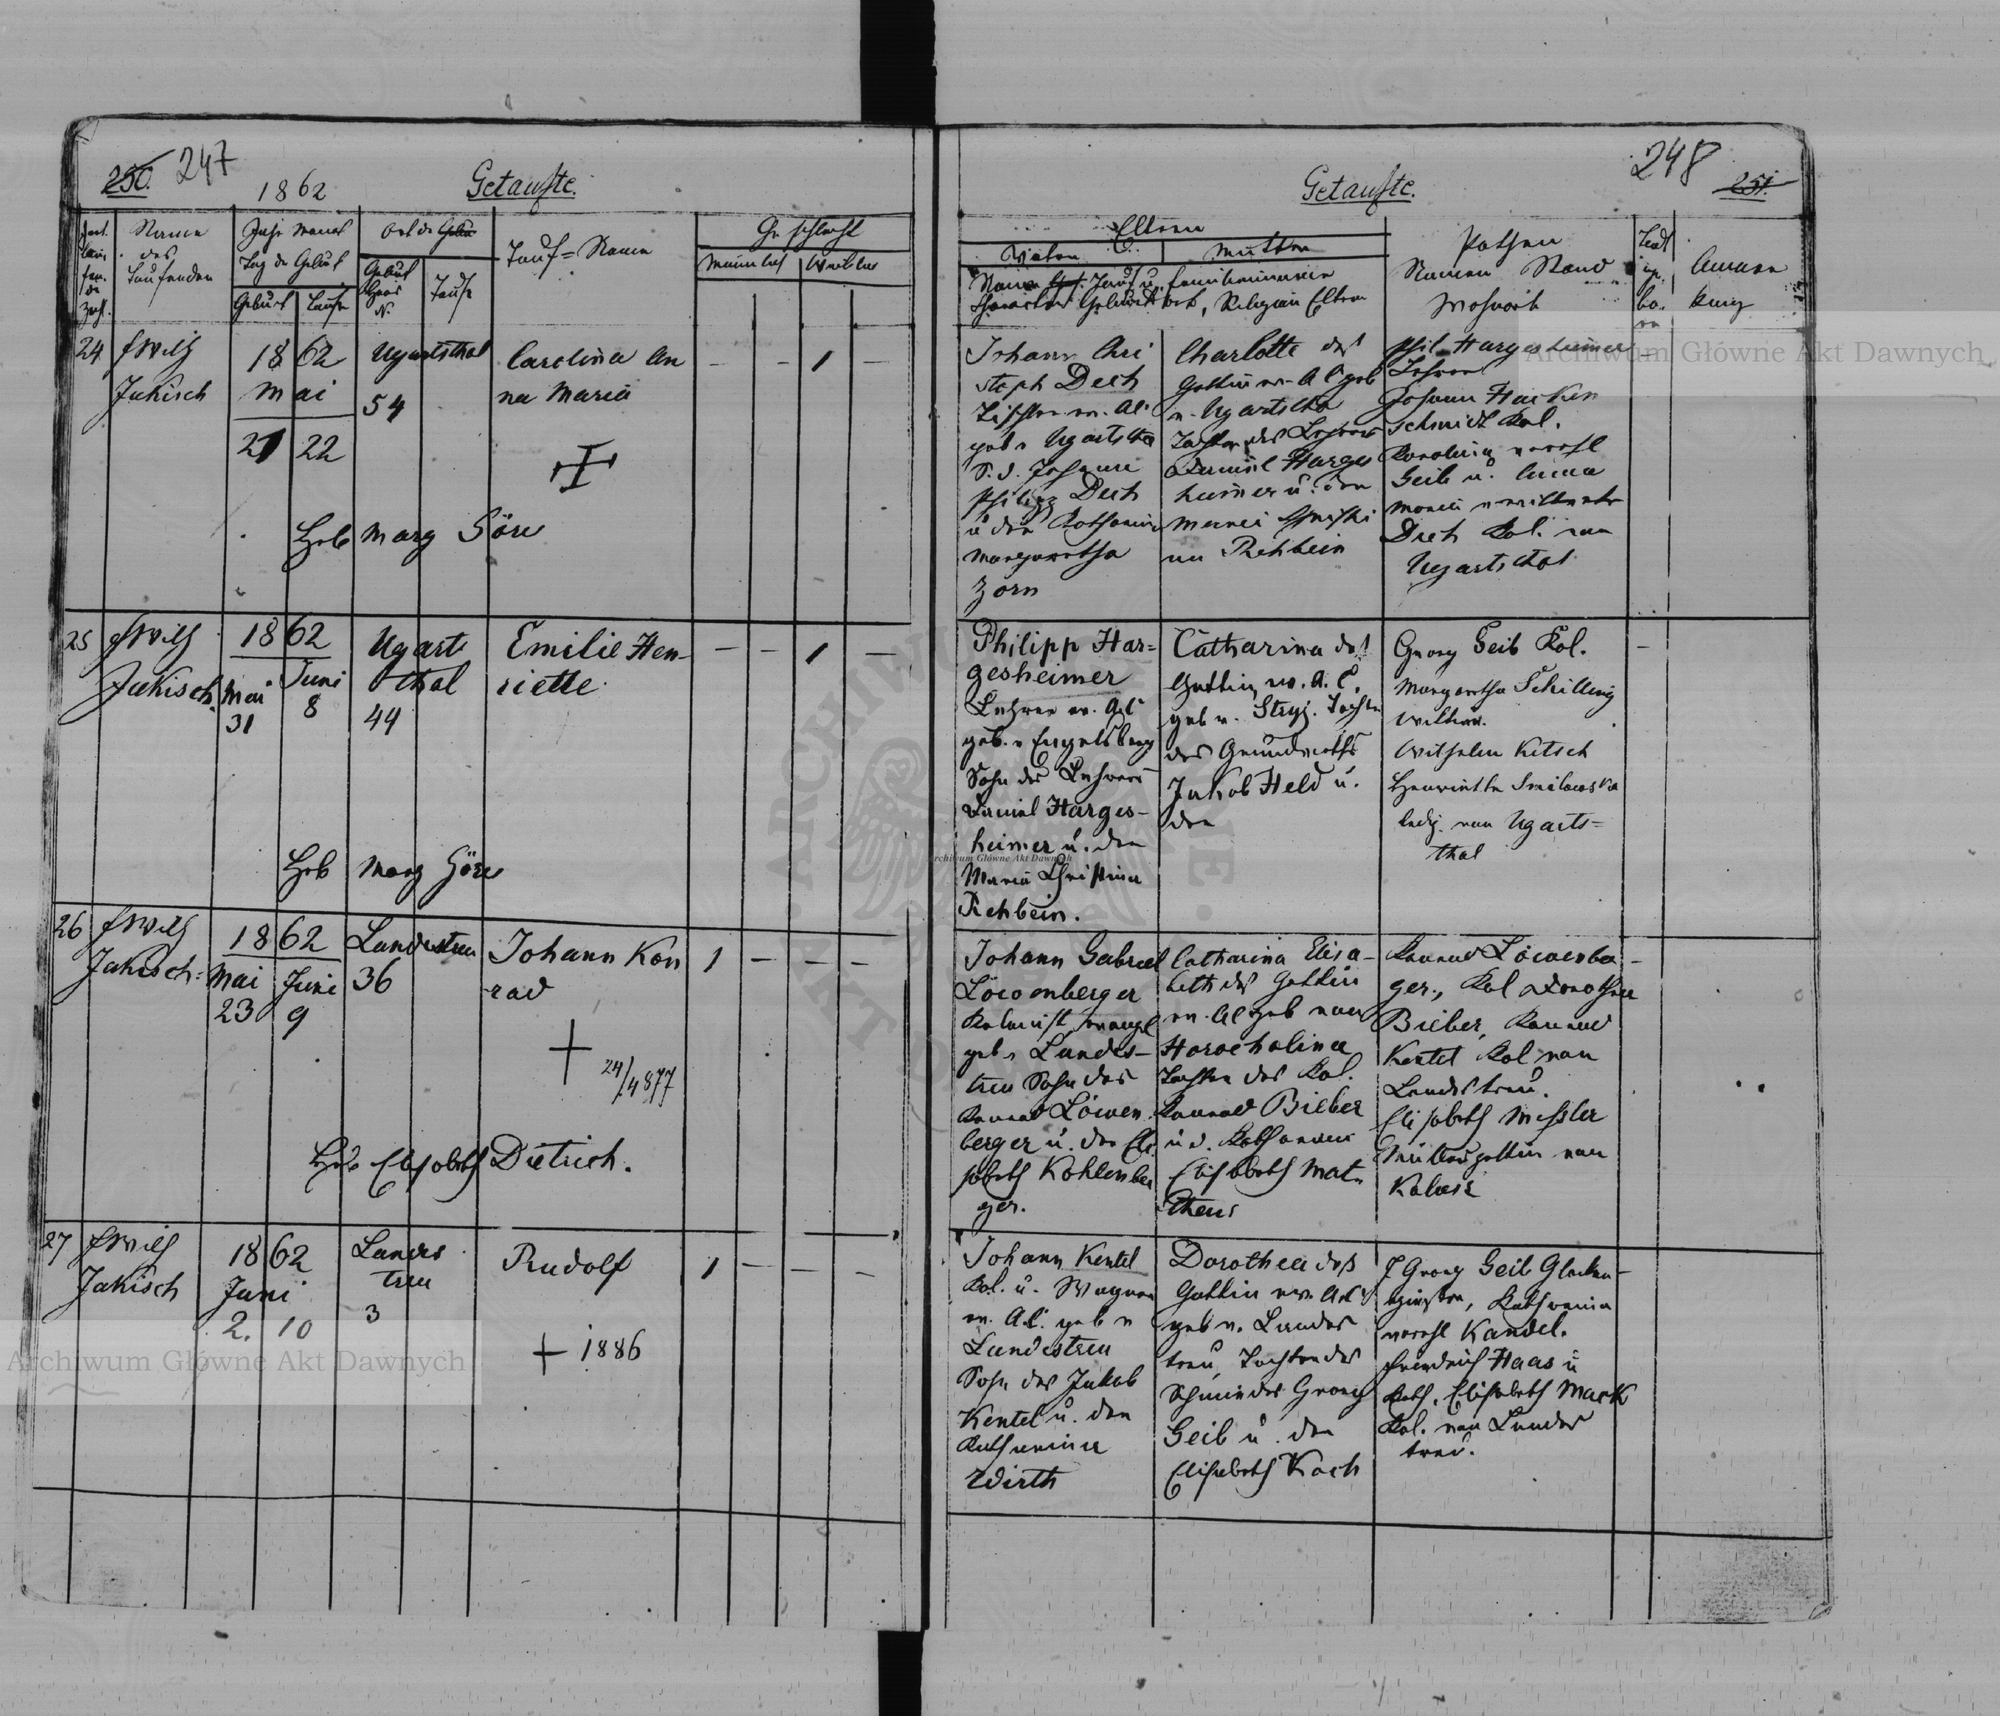 250. 247
1862
Getaufte.
Name
des
Taufenden
Jahr Monat
Tag der Geburt
Geburt
Taufe
Ort der
Geburt
Haus
N.
Taufe
Tauf=Name
Geschlecht
Männlich
Weiblich
24
Wilh
Jakisch
1862
Mai
21 22
Ugartsthal
54
Carolina An
na Maria
– – 1 –
Heb Marg Göre
25
Wilh
Jakisch.
1862
Mai
31
Juni
8
Ugarts
thal
44
Emilie Hen-
riette
– – 1 –
Heb Marg Göre
26
Wilh
Jakisch
1862
Mai
23
Juni
9
Landestreu
36
Johann Kon
rad
+ 24/4 877
1 – – –
Heb Elisabeth Dietrich.
27
Wilh
Jakisch
1862
Juni
2. 10
Landes
treu
3
Rudolf
+ 1886
1 – – –
248 251.
Getaufte.
Eltern
Vater
Mutter
Namen Tauf u. Familienname
Character Geburtsort, Religion Eltern
Pathen
Namen Stand
Wohnort
Anmer
kung
Johann Chri
stoph Dech
Tischler ev. AC
geb v Ugartsthal
S. d. Johann
Philipp Dech
u der Katharina
Margaretha
Zorn
Charlotte dess
Gattin ev. AC geb
v. Ugartsthal
Tochter des Lehrers
Daniel Harges
heimer u. der
Maria Christi
na Rehbein
Phil. Hargesheimer
Lehrer
Johann Hacken
schmidt Kol.
Karolina verehl
Geib u. Anna
Maria verwittwete
Dech Kol. von
Ugartsthal
–
Philipp Har=
gesheimer
Lehrer ev. AC
geb. v Engelsberg
Sohn des Lehrers
Daniel Harges-
heimer u. der
Maria Christina
Rehbein.
Catharina dess
Gattin ev. A. C.
geb v. Stryj. Tochter
des Grundwirths
Jakob Held u.
der
Georg Geib Kol.
Margaretha Schilling
Wittwe.
Wilhelm Ketsch
Henriette Smilowska
ledig. von Ugarts=
thal
–
Johann Gabriel
Löwenberger
Kolonist, evangel
geb v Landes-
treu Sohn des
Konrad Löwen
berger u. der Eli
sabeth Kohlenber
ger.
Catharina Elisa-
beth des Gattin
ev. AC geb von
Horocholina
Tochter des Kol.
Konrad Bieber
u d. Katharina
Elisabeth Mat-
theus
Konrad Löwenber-
ger., Kol Dorothea
Bieber, Konrad
Kentel Kol von
Landestreu.
Elisabeth Messler
Müllersgattin von
Kalusz
Johann Kentel
Kol. u. Wagner
ev. AC. geb v
Landestreu
Sohn des Jakob
Kentel u. der
Katharina
Wirth
Dorothea dess
Gattin ev. AC
geb v. Landes
treu, Tochter des
Schmiedes Georg
Geib u. der
Elisabeth Koch
J Georg Geib Glocken-
giesser, Katharina
verehl Kandel.
Friedrich Haas u
Kath. Elisabeth Mark
Kol. von Landes
treu.
Archiwum Główne Akt Dawnych
Archiwum Główne Akt Dawnych
Archiwum Główne Akt Dawnych